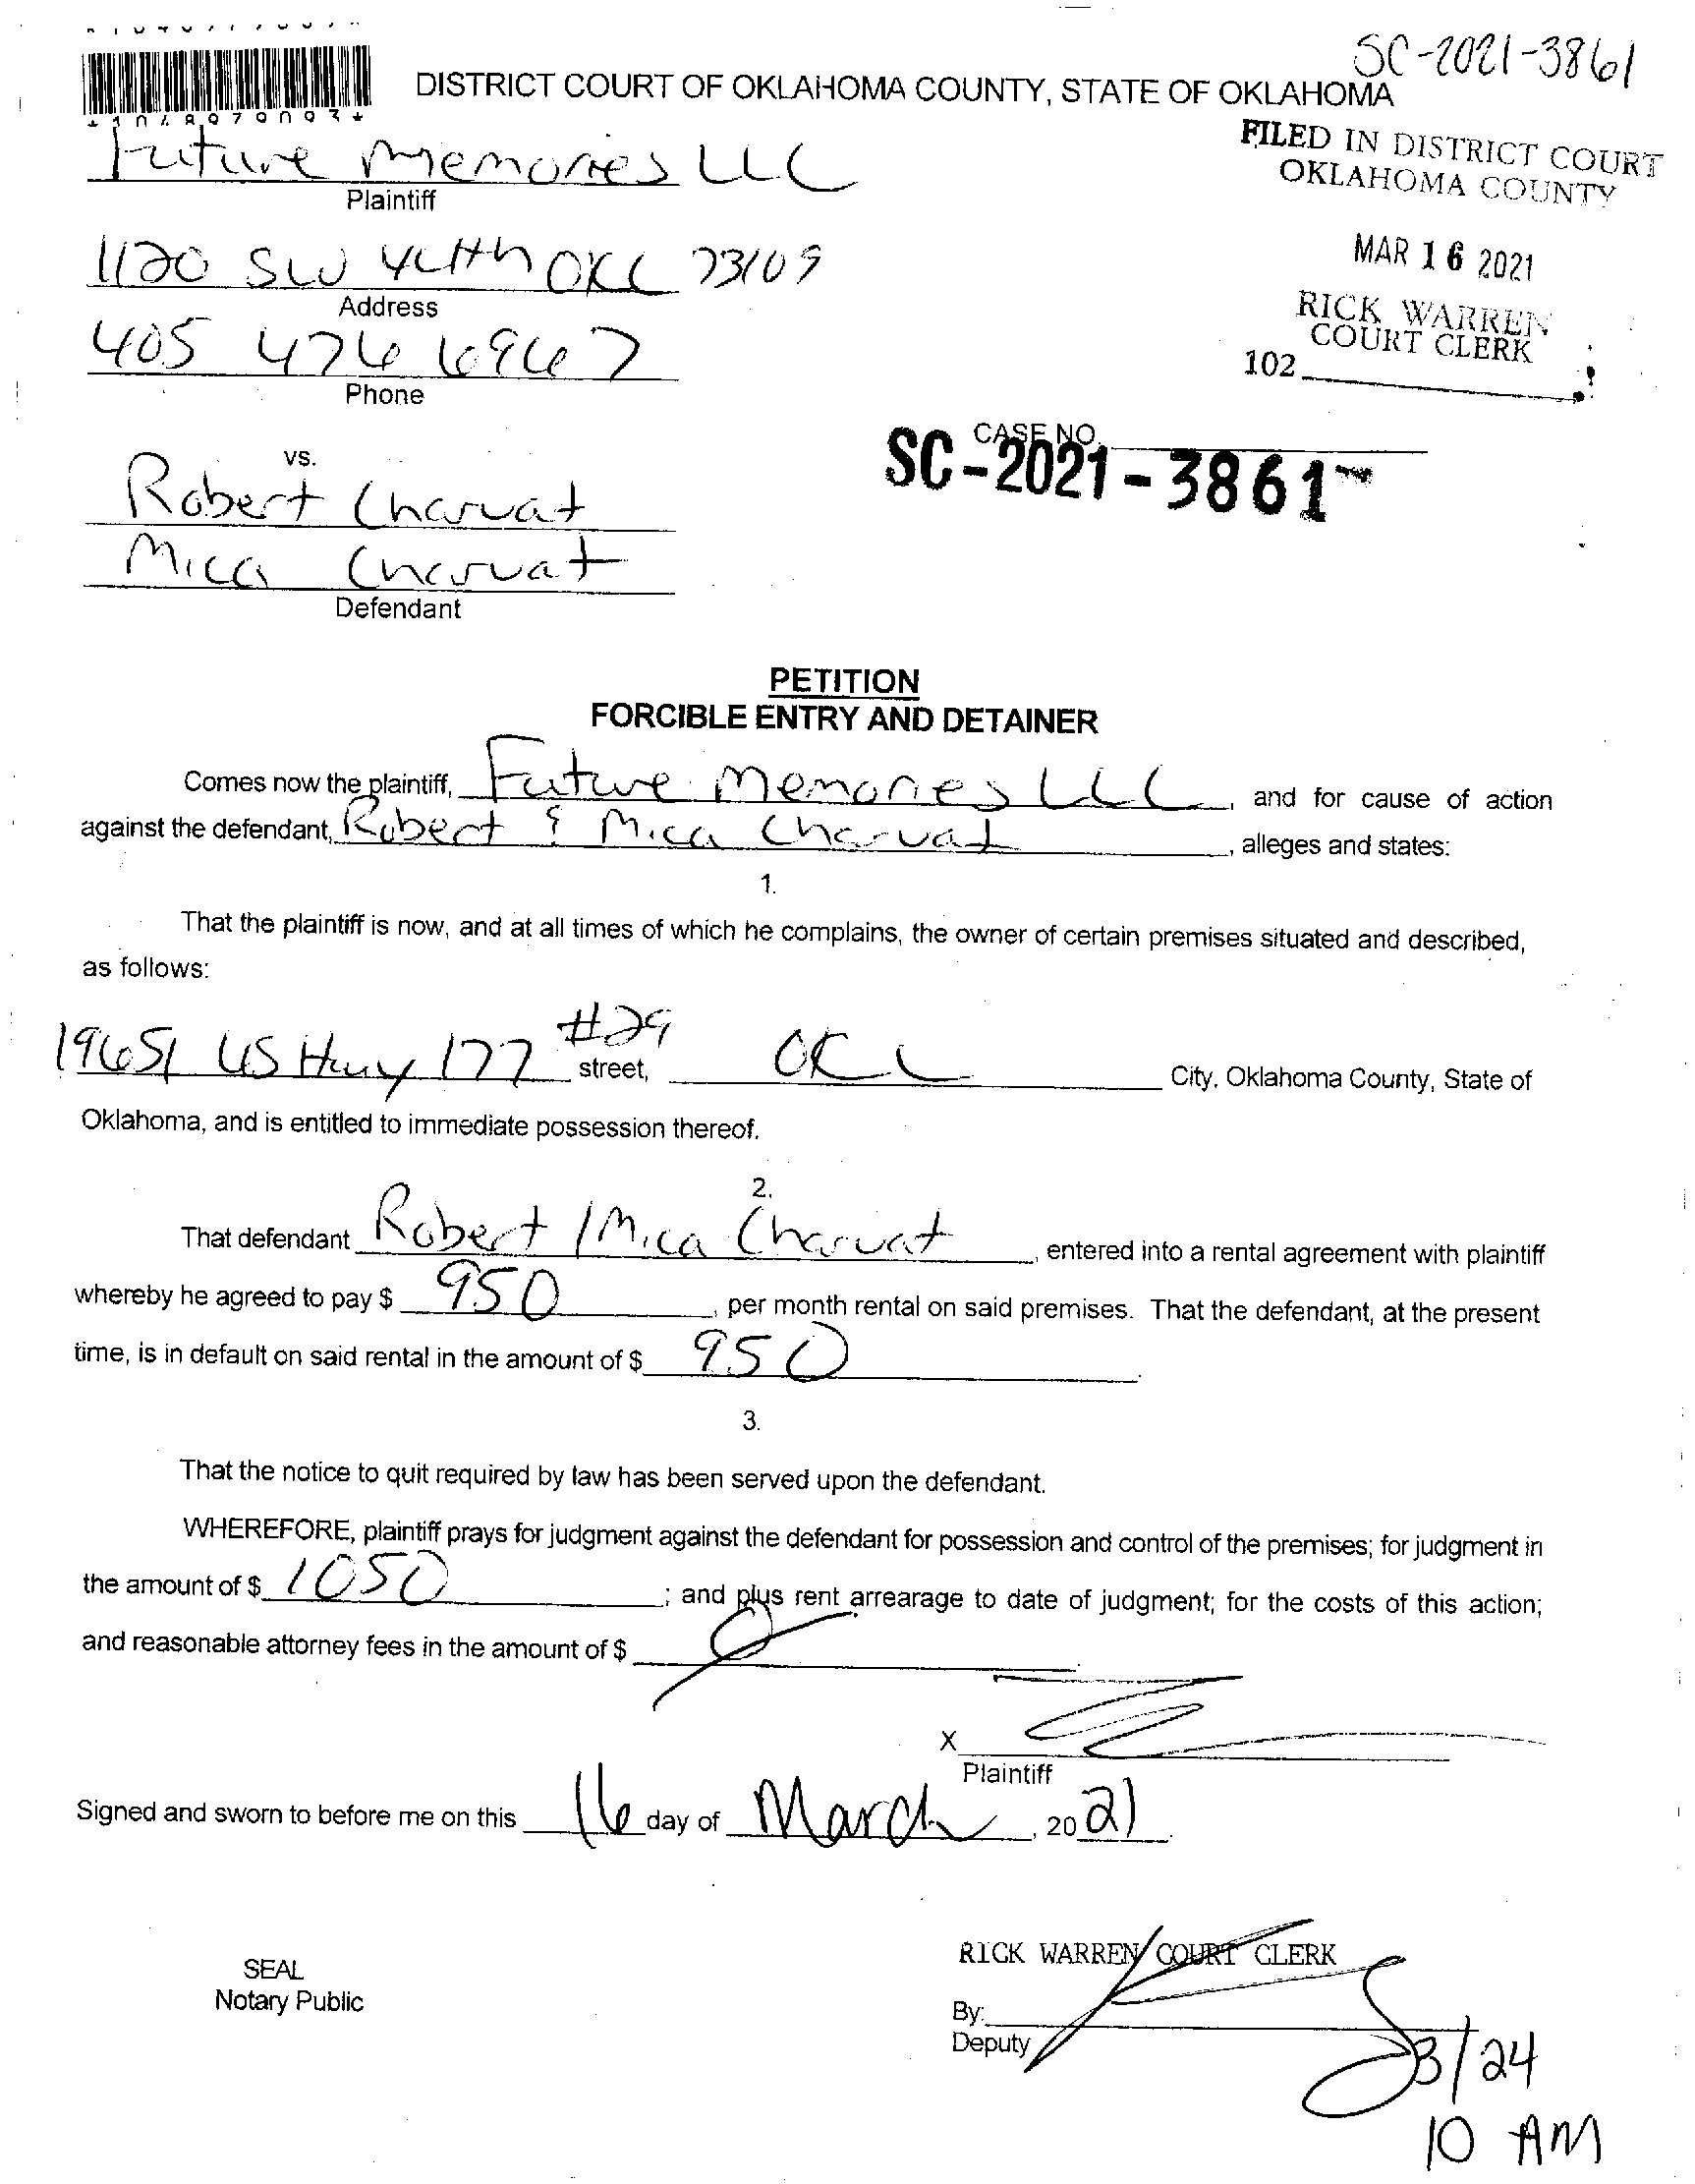 SC-2021-3861
DISTRICT COURT OF OKLAHOMA COUNTY, STATE OF OKLAHOMA
FILED IN DISTRICT COURT
OKLAHOMA COUNTY
MAR 16 2021
RICK WARREN
COURT CLERK
102
Future Memories LLC
Plaintiff
1120 SW 44th OKC 73109
Address
405 476 6967
Phone
CASE NO.
SC-2021-3861
vs.
Robert Charvat
Mica Charvat
Defendant
PETITION
FORCIBLE ENTRY AND DETAINER
Comes now the plaintiff, Future Memories LLC, and for cause of action
against the defendant, Robert & Mica Charvat, alleges and states:
1.
That the plaintiff is now, and at all times of which he complains, the owner of certain premises situated and described,
as follows:
19651 US Hwy 177 #29 street, OKC City, Oklahoma County, State of
Oklahoma, and is entitled to immediate possession thereof.
2.
That defendant Robert / Mica Charvat, entered into a rental agreement with plaintiff
whereby he agreed to pay $ 950, per month rental on said premises. That the defendant, at the present
time, is in default on said rental in the amount of $ 950.
3.
That the notice to quit required by law has been served upon the defendant.
WHEREFORE, plaintiff prays for judgment against the defendant for possession and control of the premises; for judgment in
the amount of $ 1050; and plus rent arrearage to date of judgment; for the costs of this action;
and reasonable attorney fees in the amount of $
X
Plaintiff
Signed and sworn to before me on this 16 day of March, 2021
RICK WARREN COURT CLERK
SEAL
Notary Public
By:
Deputy
3/24
10 AM